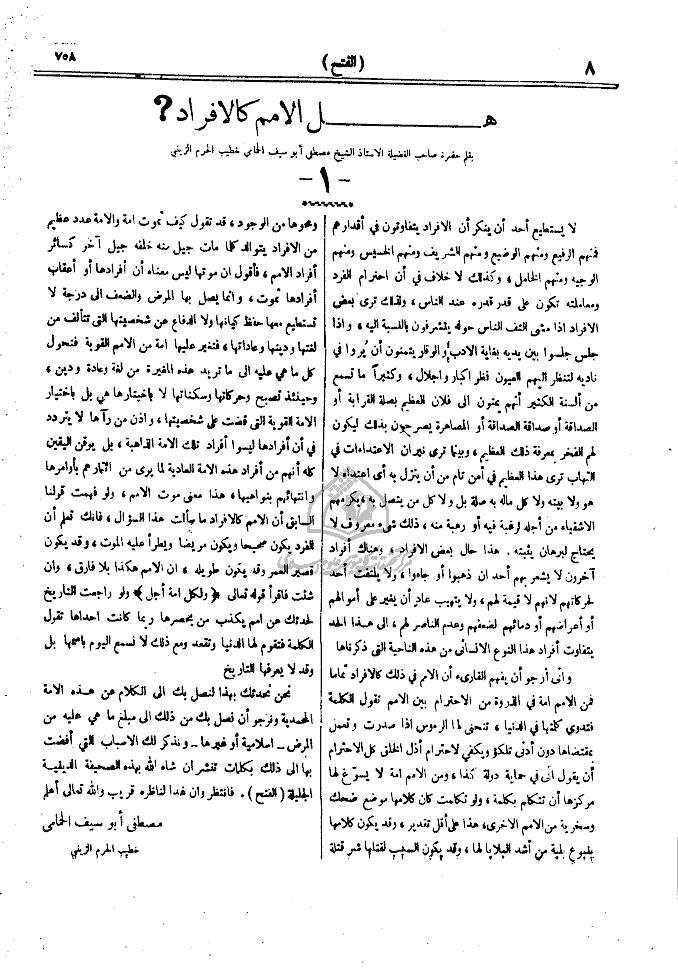 ٨
(الفتح)
٧٥٨
هـــــــل الامم كالافراد؟
بقلم حضرة صاحب الفضيلة الاستاذ الشيخ مصطفى أبو سيف الحمامي خطيب الحرم الزينبي
- ١ -
لا يستطيع أحد أن ينكر أن الافراد يتفاوتون في أقدارهم
فمنهم الرفيع ومنهم الوضيع ومنهم الشريف ومنهم الخسيس ومنهم
الوجيه ومنهم الخامل ، وكذلك لا خلاف في أن احترام الفرد
ومعاملته تكون على قدر قدره عند الناس ، ولذلك ترى بعض
الافراد اذا مشى التف الناس حوله يتشرفون بالنسبة اليه ، واذا
جلس جلسوا بين يديه بغاية الادب والوقار يتمنون أن يُروا في
ناديه لتنظر اليهم العيون نظر اكبار واجلال ، وكثيراً ما تسمع
من ألسنة الكثير أنهم يمتون الى فلان العظيم بصلة القرابة أو
الصداقة أو صداقة الصداقة أو المصاهرة يصرحون بذلك ليكون
لهم الفخر بمعرفة ذلك العظيم ، وبينما ترى نيران الاعتداءات في
التهاب ترى هذا العظيم في أمن تام من أن ينزل به أى اعتداء لا
هو ولا بيته ولا كل ماله به صلة بل ولا كل من يتصل به ، يكرمهم
الاشقياء من أجله لرغبة فيه أو رهبة منه ، ذلك شىء معروف لا
يحتاج لبرهان يثبته . هذا حال بعض الافراد ، وهناك أفراد
آخرون لا يشعر بهم أحد ان ذهبوا أو جاءوا ، ولا يلتفت أحد
لحركاتهم لانهم لا قيمة لهم ، ولا يتهيب عادٍ أن يغير على أموالهم
أو أعراضهم أو دمائهم لضعفهم وعدم الناصر لهم ، الى هذا الحد
يتفاوت أفراد هذا النوع الانسانى من هذه الناحية التى ذكرناها
وانى أرجو أن يفهم القارىء أن الامم في ذلك كالافراد تماما
فمن الامم امة في الذروة من الاحترام بين الامم تقول الكلمة
فتدوي كلمتها في الدنيا ، تنحنى لها الرءوس اذا صدرت وتعمل
بمقتضاها دون أدنى تلكؤ ويكفي لاحترام أذل الخلق كل الاحترام
أن يقول انى في حماية دولة كذا ، ومن الامم امة لا يسوّغ لها
مركزها أن تتكلم بكلمة ، ولو تكلمت كان كلامها موضع ضحك
وسخرية من الامم الاخرى ، هذا على أقل تقدير ، وقد يكون كلامها
ينبوع بلية من أشد البلايا لها ، وقد يكون السبب لقتلها شر قتلة
ومحوها من الوجود ، قد تقول كيف تموت امة والامة عدد عظيم
من الافراد يتوالد كلما مات جيل منه خلفه جيل آخر كسائر
أفراد الامم ، فأقول ان موتها ليس معناه أن أفرادها أو أعقاب
أفرادها تموت ، وانما يصل بها المرض والضعف الى درجة لا
تستطيع معها حفظ كيانها ولا الدفاع عن شخصيتها التى تتألف من
لغتها ودينها وعاداتها ، فتغير عليها امة من الامم القوية فتحول
كل ما هي عليه الى ما تريد هذه المغيرة من لغة وعادة ودين ،
وحينئذ تصبح وحركاتها وسكناتها لا باختيارها هي بل باختيار
الامة القوية التى قضت على شخصيتها ، واذن من رآها لا يتردد
في أن أفرادها ليسوا أفراد تلك الامة الذاهبة ، بل يوقن اليقين
كله أنهم من أفراد هذه الامة العادية لما يرى من ائتمارهم بأوامرها
وانتهائهم بنواهيها ، هذا معنى موت الامم ، ولو فهمت قولنا
السابق أن الامم كالافراد ما سألت هذا السؤال ، فانك تعلم أن
الفرد يكون صحيحا ويكون مريضا ويطرأ عليه الموت ، وقد يكون
قصير العمر وقد يكون طويله ، ان الامم هكذا بلا فارق ، وان
شئت فاقرأ قوله تعالى ﴿ولكل امة أجل﴾ ولو راجعت التاريخ
لحدثك عن امم يكذب من يحصرها ربما كانت احداها تقول
الكلمة فتقوم لها الدنيا وتقعد ومع ذلك لا نسمع اليوم باسمها بل
وقد لا يعرفها التاريخ
نحن نحدثك بهذا لنصل بك الى الكلام عن هذه الامة
المحمدية ونرجو أن نصل بك من ذلك الى مبلغ ما هي عليه من
المرض - اسلامية أو غيرها - ونذكر لك الاسباب التي أفضت
بها الى ذلك بكلمات تنشر ان شاء الله بهذه الصحيفة الدينية
الجليلة (الفتح) . فانتظر وان غدا لناظره قريب والله تعالى أعلم
مصطفى أبو سيف الحمامى
خطيب الحرم الزينبي